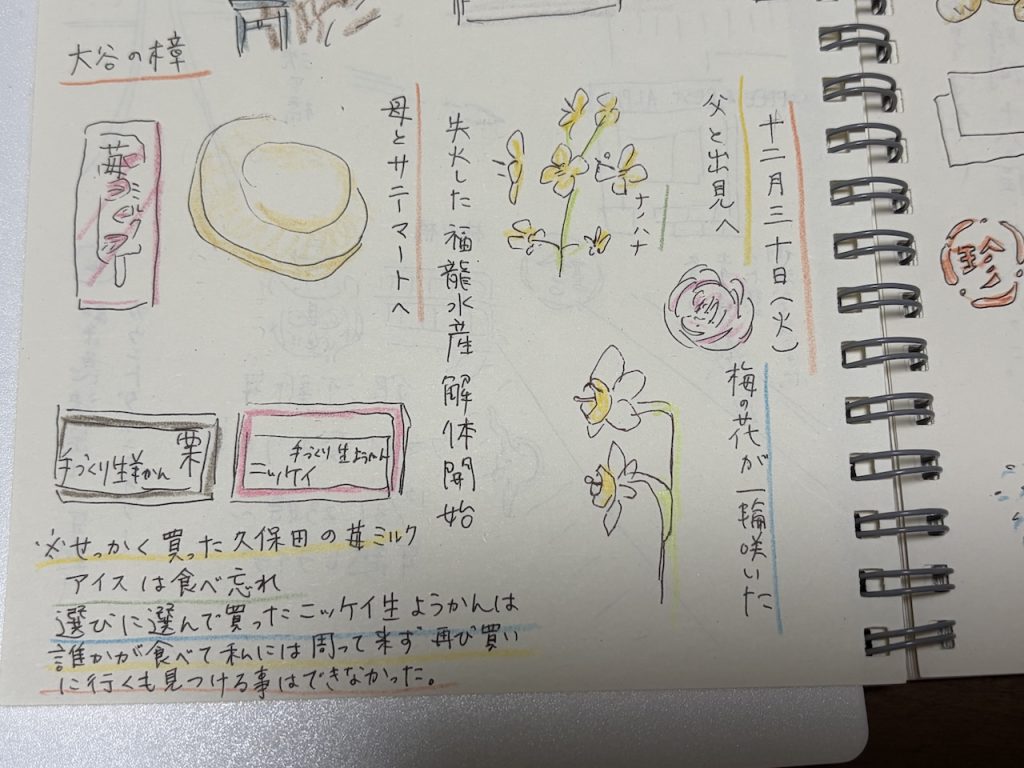 大谷の樟
十二月三十日(火)
父と出見へ
ナノハナ
梅の花が一輪咲いた
失火した福龍水産解体開始
母とサニーマートへ
苺ミルク
栗
手づくり生羊かん
手づくり生ようかん
ニッケイ
※せっかく買った久保田の苺ミルク
アイスは食べ忘れ
選びに選んで買ったニッケイ生ようかんは
誰かが食べて私には周って来ず再び買い
に行くも見つける事はできなかった。
珍